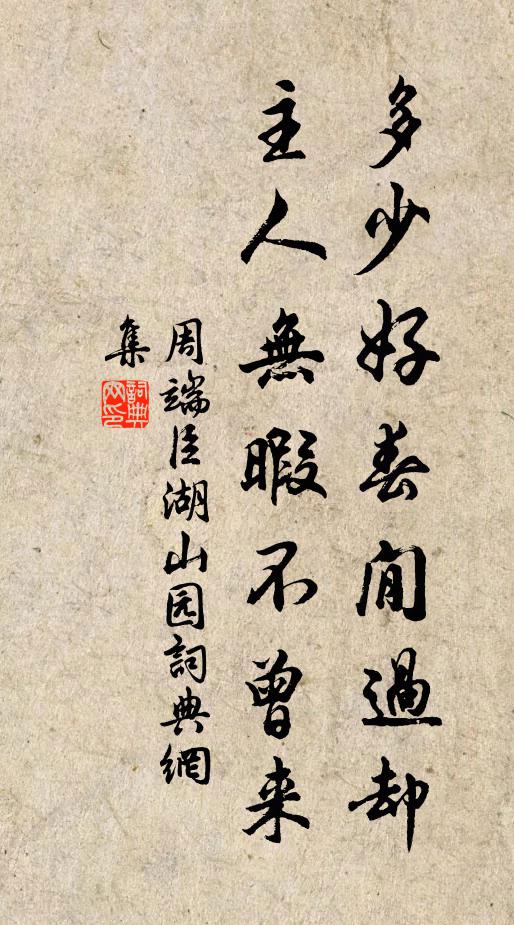 多少好春閒過却
主人無暇不曾来
周端臣湖山园詞典網
集
詞典网印